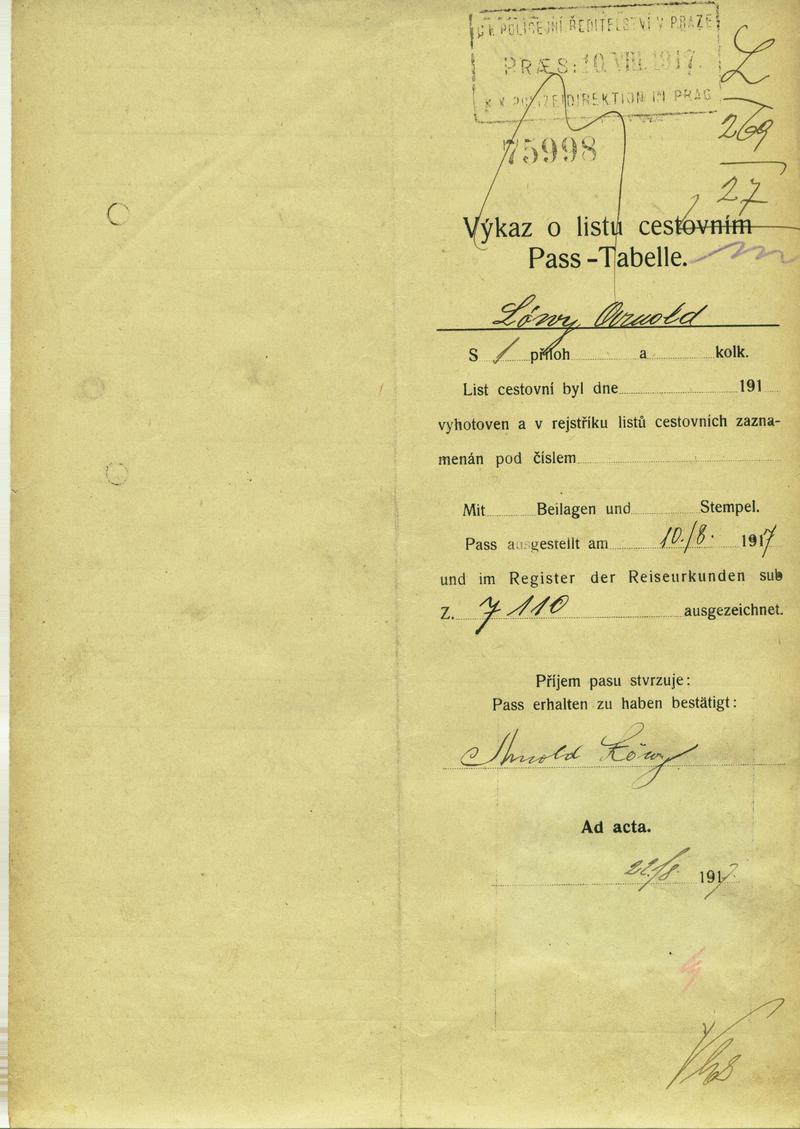 C. K. POLICEJNÍ ŘEDITELSTVÍ V PRAZE
PRÆS: 10. VIII. 1917.
K. K. POLIZEIDIREKTION IN PRAG
L
269
27
75998
Výkaz o listu cestovním
Pass-Tabelle.
Löwy Arnold
S 1 příloh a kolk.
List cestovní byl dne 191
vyhotoven a v rejstříku listů cestovních zazna-
menán pod číslem
Mit Beilagen und Stempel.
Pass ausgestellt am 10./8. 1917
und im Register der Reiseurkunden sub
Z. 7110 ausgezeichnet.
Příjem pasu stvrzuje:
Pass erhalten zu haben bestätigt:
Arnold Löwy
Ad acta.
22/8 1917.